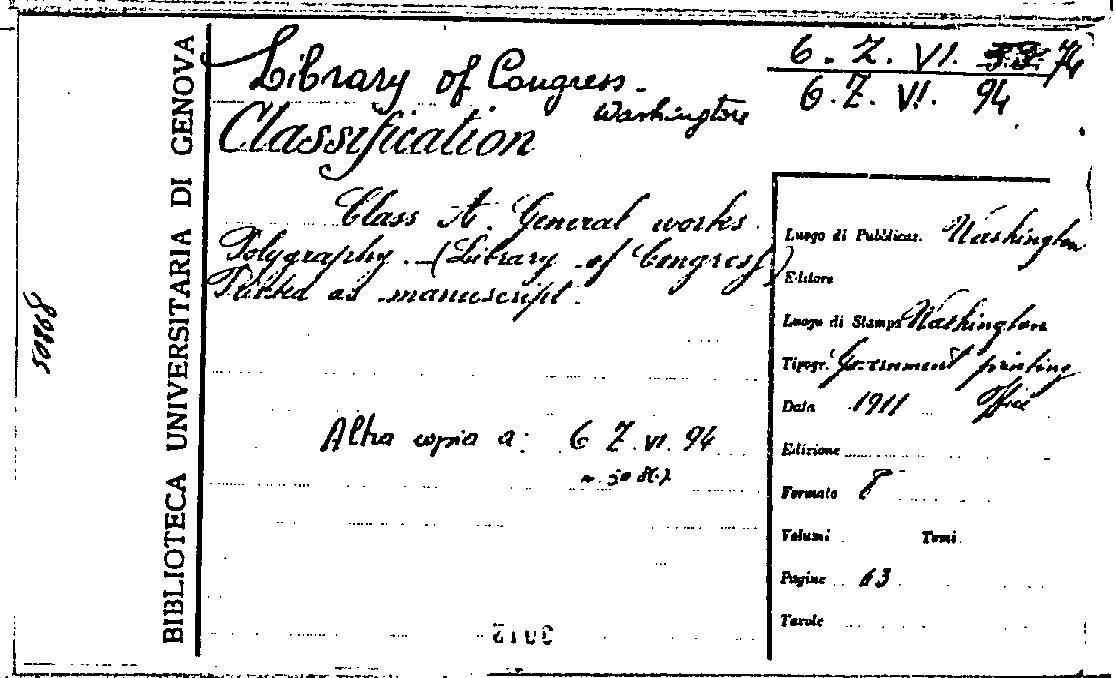 BIBLIOTECA UNIVERSITARIA DI GENOVA
50868
Library of Congress.
Washington
Classification
6. Z. VI. 74
6. Z. VI. 94
Class A. General works
Polygraphy. - (Library of Congress)
Printed as manuscript.
Altra copia a: 6 Z. VI. 94
Luogo di Pubblicaz. Washington
Editore
Luogo di Stampa Washington
Tipogr. Government printing
office
Data 1911
Edizione
Formato 8
Volumi Tomi
Pagine 63
Tavole